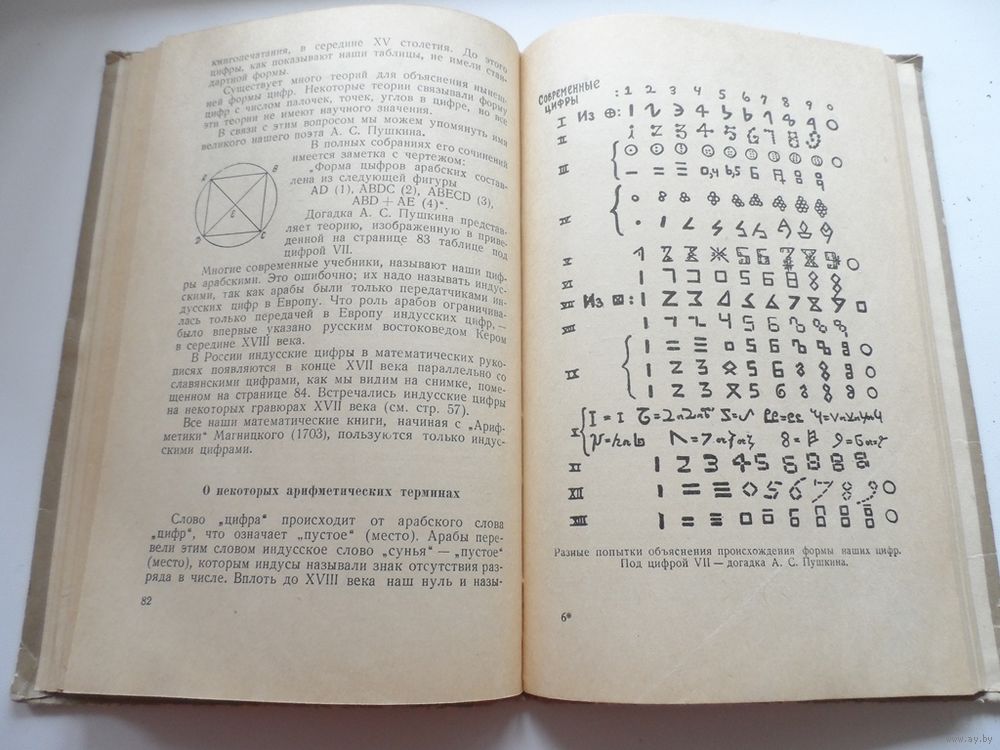 книгопечатания, в середине XV столетия. До этого
цифры, как показывают наши таблицы, не имели стан-
дартной формы.
Существует много теорий для объяснения нынеш-
ней формы цифр. Некоторые теории связывали форму
цифр с числом палочек, точек, углов в цифре, но все
эти теории не имеют научного значения.
В связи с этим вопросом мы можем упомянуть имя
великого нашего поэта А. С. Пушкина.
В полных собраниях его сочинений
имеется заметка с чертежом:
„Форма цыфров арабских состав-
лена из следующей фигуры
AD (1), ABDC (2), ABECD (3),
ABD + AE (4)“.
A
B
E
D
C
Догадка А. С. Пушкина представ-
ляет теорию, изображенную в приве-
денной на странице 83 таблице под
цифрой VII.
Многие современные учебники, называют наши циф-
ры арабскими. Это ошибочно; их надо называть индус-
скими, так как арабы были только передатчиками ин-
дусских цифр в Европу. Что роль арабов ограничива-
лась только передачей в Европу индусских цифр, —
было впервые указано русским востоковедом Кером
в середине XVIII века.
В России индусские цифры в математических руко-
писях появляются в конце XVII века параллельно со
славянскими цифрами, как мы видим на снимке, поме-
щенном на странице 84. Встречались индусские цифры
на некоторых гравюрах XVII века (см. стр. 57).
Все наши математические книги, начиная с „Ариф-
метики“ Магницкого (1703), пользуются только индус-
скими цифрами.
О некоторых арифметических терминах
Слово „цифра“ происходит от арабского слова
„цифр“, что означает „пустое“ (место). Арабы пере-
вели этим словом индусское слово „сунья“ — „пустое“
(место), которым индусы называли знак отсутствия раз-
ряда в числе. Вплоть до XVIII века наш нуль и назы-
82
Современные цифры : 1 2 3 4 5 6 7 8 9 0
I Из ⊕: 1 2 3 4 5 6 7 8 9 0
II 1 2 3 4 5 6 7 8
III
IV
V 1 2 5 6 7 8 9 0
VI 1 5 6 8
VII Из ⊠: 1 2 3 4 5 6 7 8 9 0
VIII 1 2 4 5 6
IX
X
XI 1 2 3 4 5 6 8 8
XII 1 = ≡ 5 6 7 8 9 0
XIII 1 = ≡
Разные попытки объяснения происхождения формы наших цифр.
Под цифрой VII — догадка А. С. Пушкина.
6*
www.ay.by